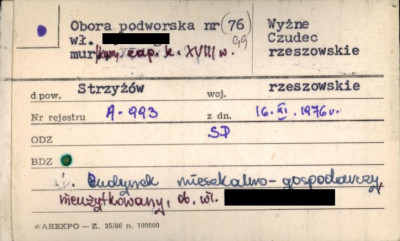 Obora podworska nr (76)
99
wł.
mur. zap. k. XVIII w.
Wyżne
Czudec
rzeszowskie
d pow. Strzyżów woj. rzeszowskie
Nr rejestru A-993 z dn. 16.XI.1976 r.
ODZ S.P
BDZ
ob. Budynek mieszkalno-gospodarczy
nieużytkowany, ob. wł.
WAREXPO — Z. 35/86 n. 100000